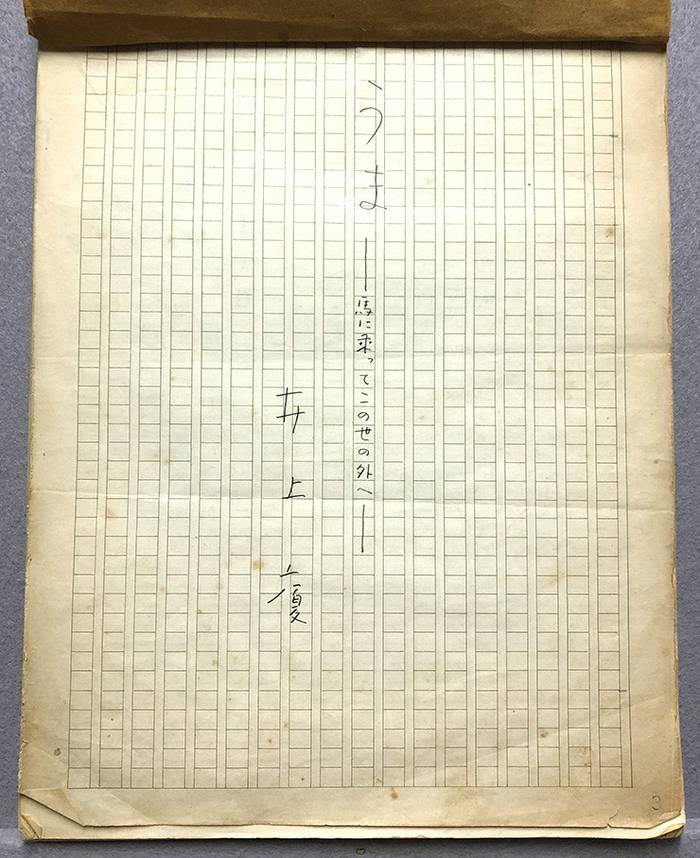 うま ——馬に乗ってこの世の外へ——
井上廈
3